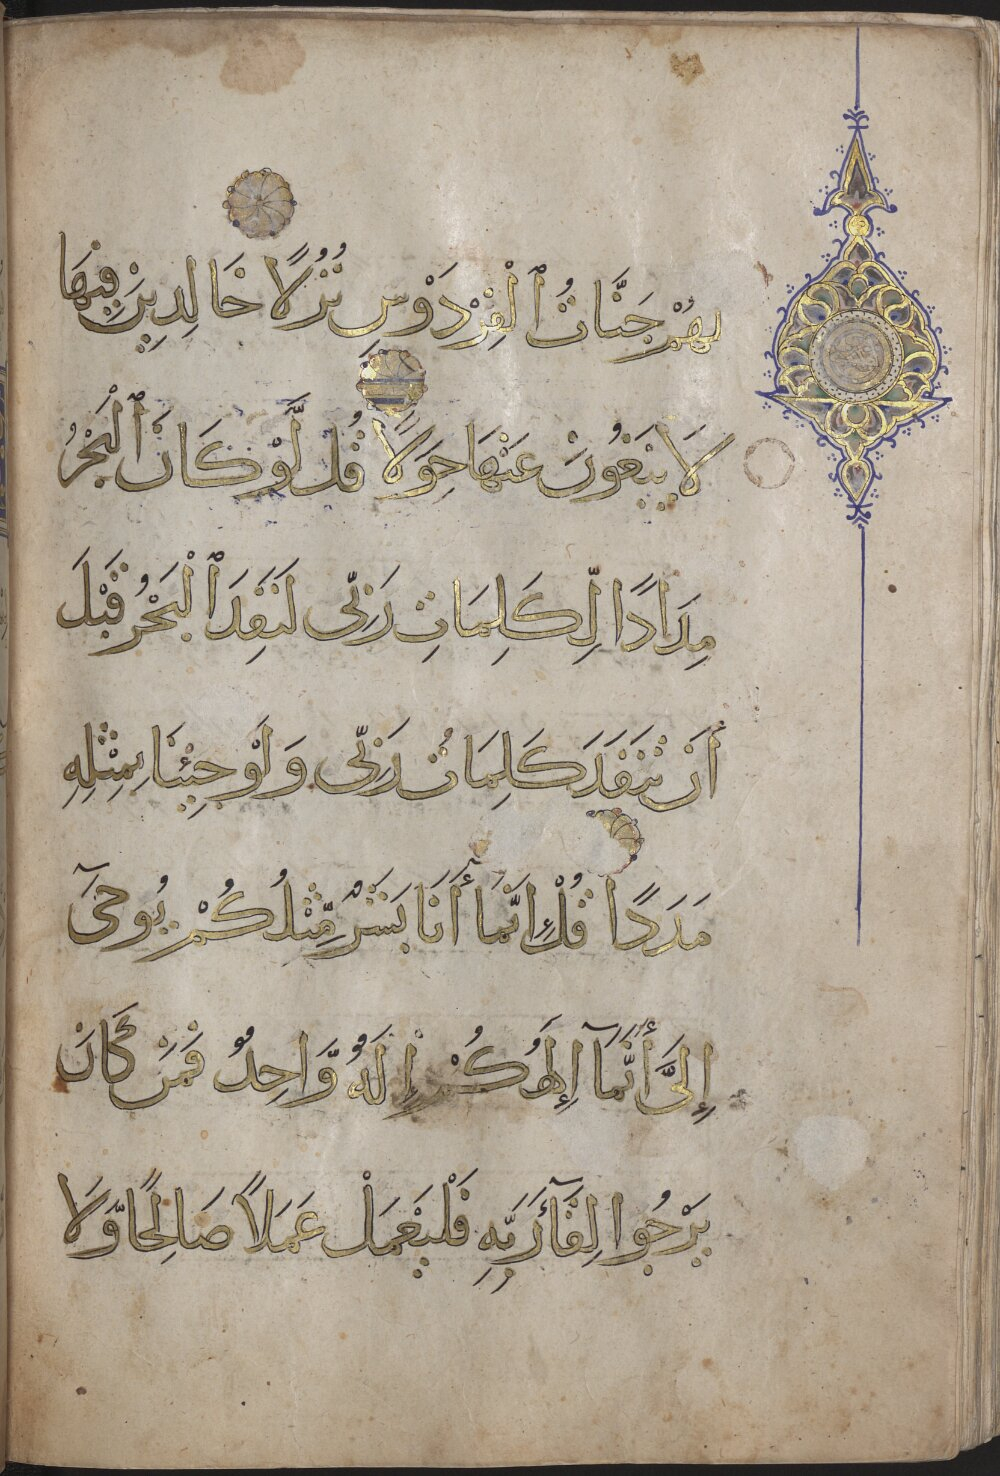 لَهُمْ جَنَّاتُ ٱلْفِرْدَوْسِ نُزُلًا خَالِدِينَ فِيهَا
لَا يَبْغُونَ عَنْهَا حِوَلًا قُل لَّوْ كَانَ ٱلْبَحْرُ
مِدَادًا لِّكَلِمَاتِ رَبِّى لَنَفِدَ ٱلْبَحْرُ قَبْلَ
أَن تَنفَدَ كَلِمَاتُ رَبِّى وَلَوْ جِئْنَا بِمِثْلِهِ
مَدَدًا قُلْ إِنَّمَا أَنَا بَشَرٌ مِّثْلُكُمْ يُوحَىٰٓ
إِلَىَّ أَنَّمَآ إِلَٰهُكُمْ إِلَهٌ وَّاحِدٌ فَمَن كَانَ
يَرْجُوا لِقَآءَ رَبِّهِ فَلْيَعْمَلْ عَمَلًا صَالِحًا وَّلَا